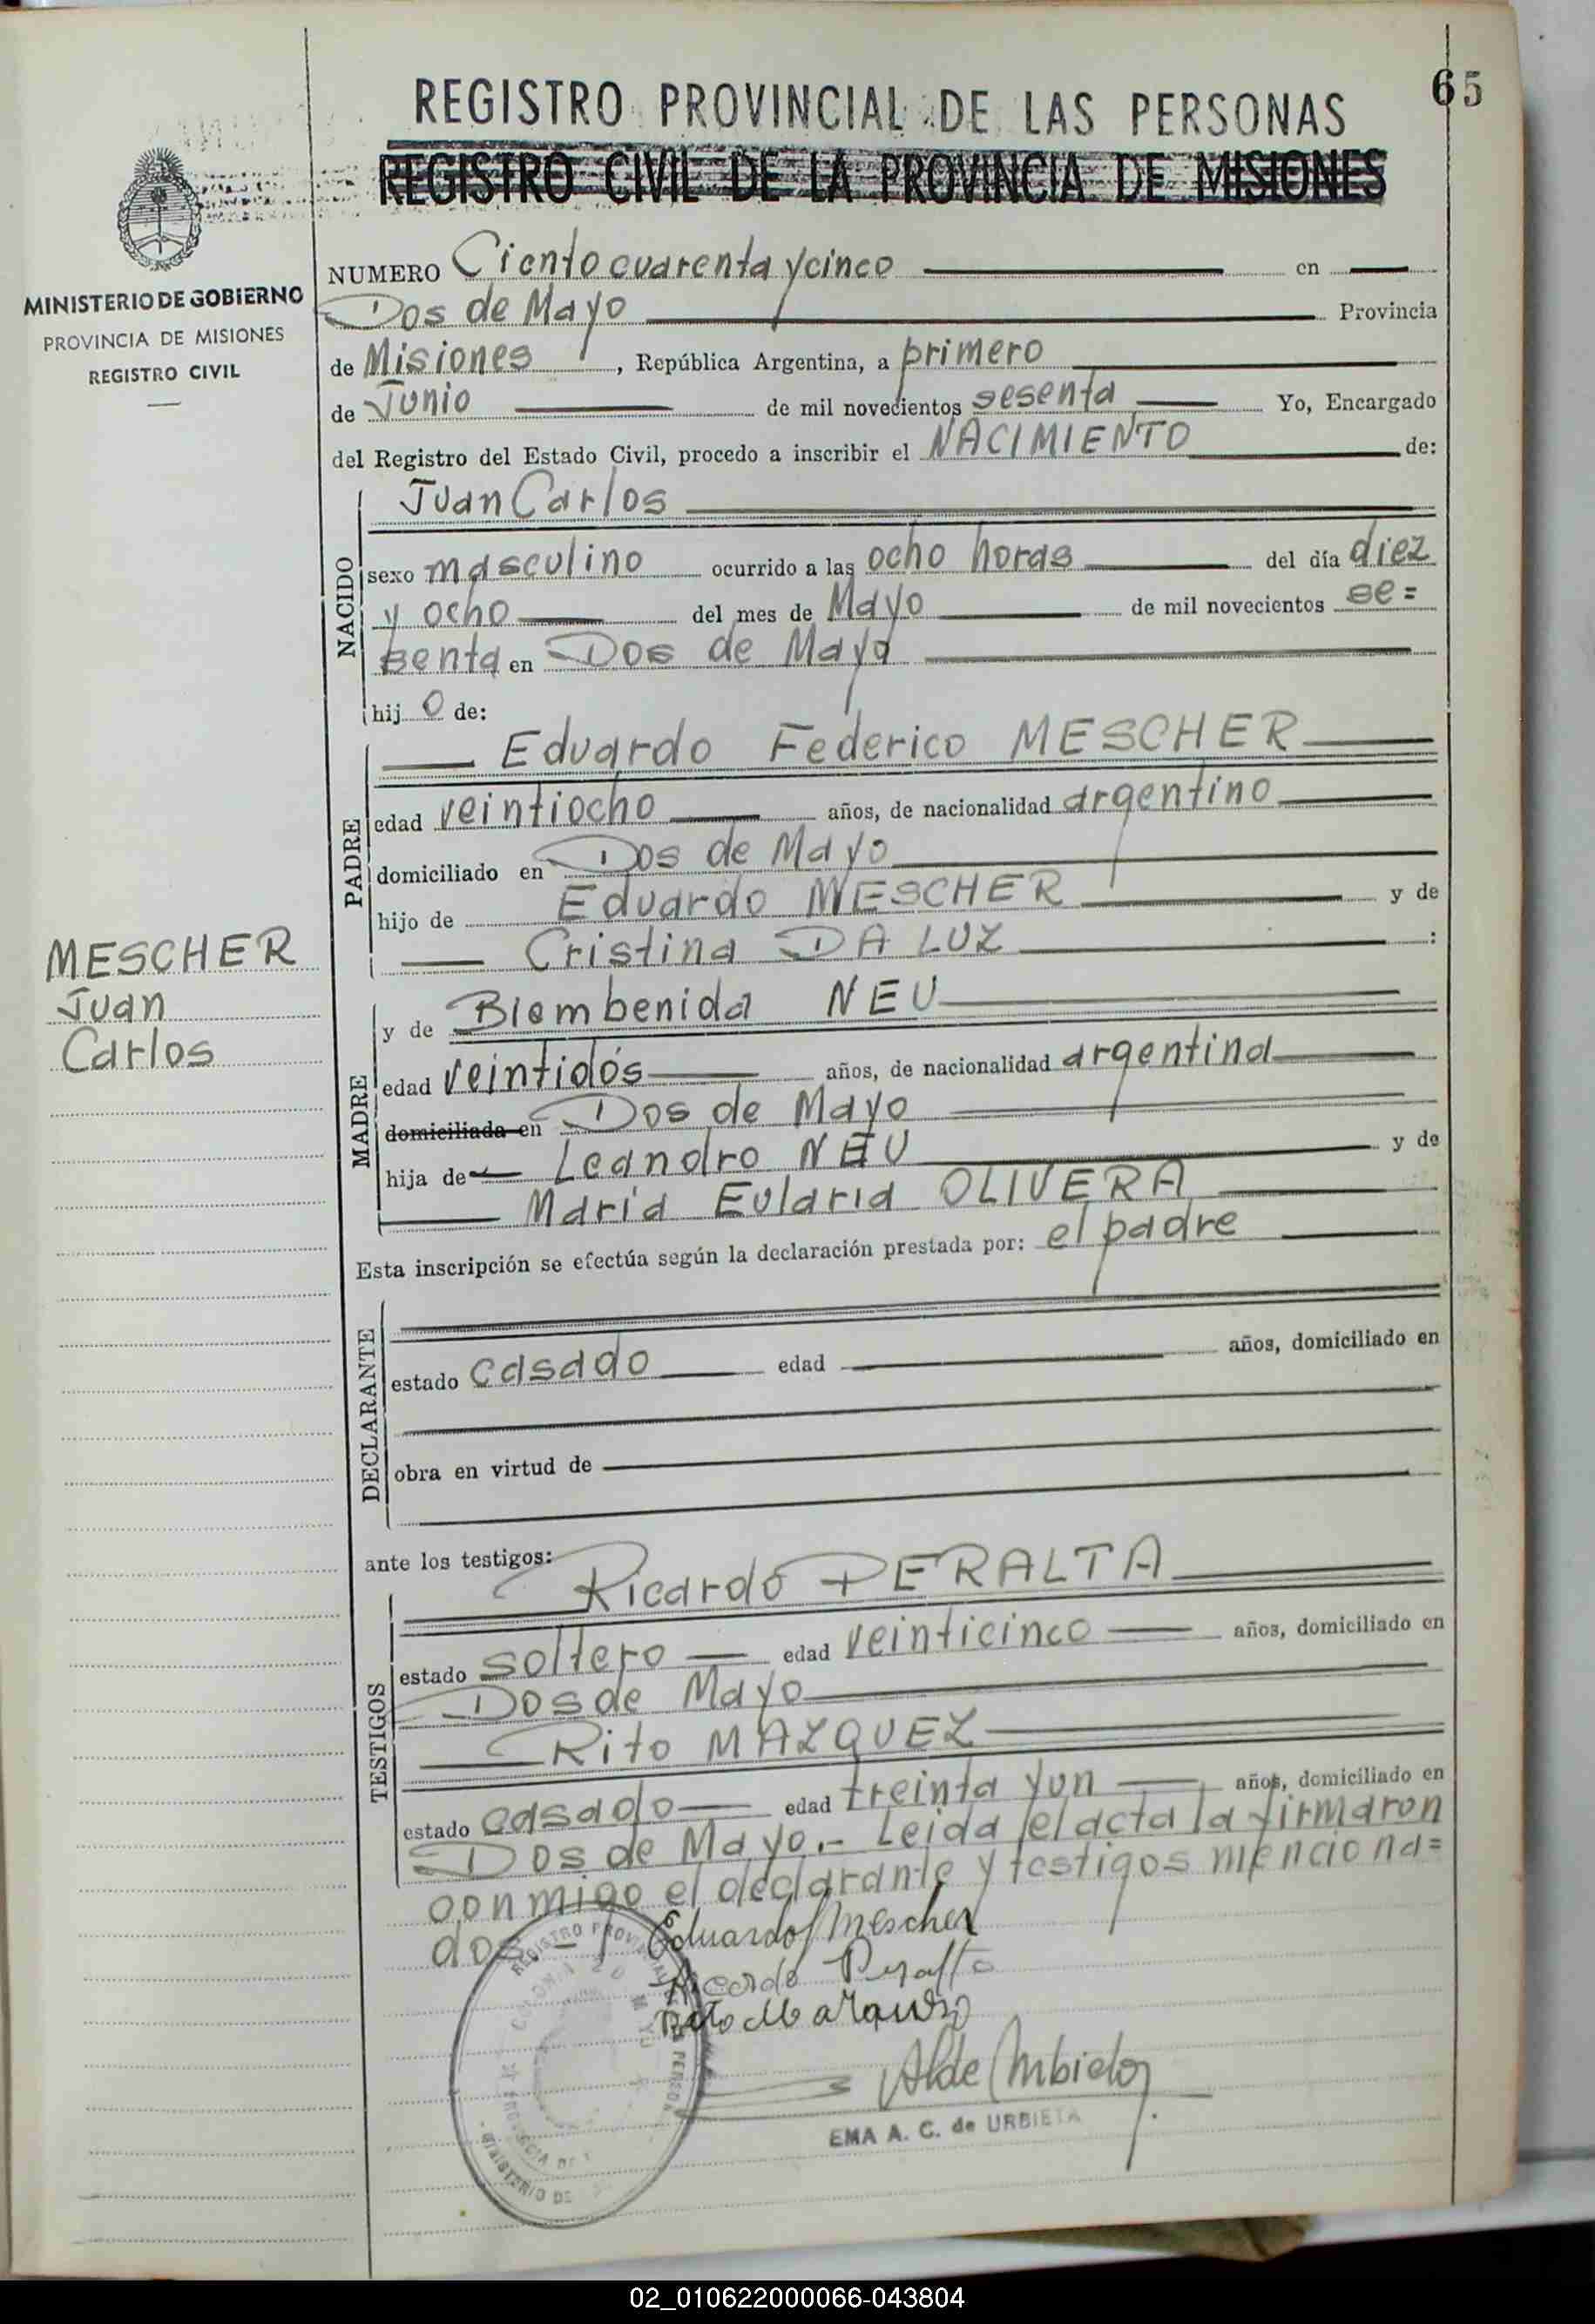 65
REGISTRO PROVINCIAL DE LAS PERSONAS
REGISTRO CIVIL DE LA PROVINCIA DE MISIONES
MINISTERIO DE GOBIERNO
PROVINCIA DE MISIONES
REGISTRO CIVIL
NUMERO Ciento cuarenta y cinco en
Dos de Mayo Provincia
de Misiones, República Argentina, a primero
de Junio de mil novecientos sesenta Yo, Encargado
del Registro del Estado Civil, procedo a inscribir el NACIMIENTO de:
NACIDO
Juan Carlos
sexo masculino ocurrido a las ocho horas del día diez
y ocho del mes de Mayo de mil novecientos se=
senta en Dos de Mayo
hijo de:
PADRE
Eduardo Federico MESCHER
edad veintiocho años, de nacionalidad argentino
domiciliado en Dos de Mayo
hijo de Eduardo MESCHER y de
Cristina DA LUZ :
MESCHER
Juan
Carlos
MADRE
y de Biembenida NEU
edad veintidós años, de nacionalidad argentina
domiciliada en Dos de Mayo
hija de Leandro NEU y de
María Eularia OLIVERA
Esta inscripción se efectúa según la declaración prestada por: el padre
DECLARANTE
estado casado edad años, domiciliado en
obra en virtud de
ante los testigos:
TESTIGOS
Ricardo PERALTA
estado soltero edad veinticinco años, domiciliado en
Dos de Mayo
Rito MAZQUEZ
estado casado edad treinta y un años, domiciliado en
Dos de Mayo.- Leida el acta la firmaron
conmigo el declarante y testigos menciona=
dos.-
Eduardo f Mescher
Ricardo Peralta
REGISTRO PROVINCIAL
MINISTERIO DE
EMA A. C. de URBIETA
02_010622000066-043804